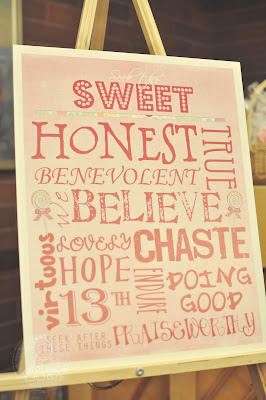 SWEET
HONEST
TRUE
BENEVOLENT
we
BELIEVE
virtuous
LOVELY
CHASTE
HOPE
ENDURE
DOING
13TH
GOOD
SEEK AFTER
THESE THINGS
PRAISEWORTHY